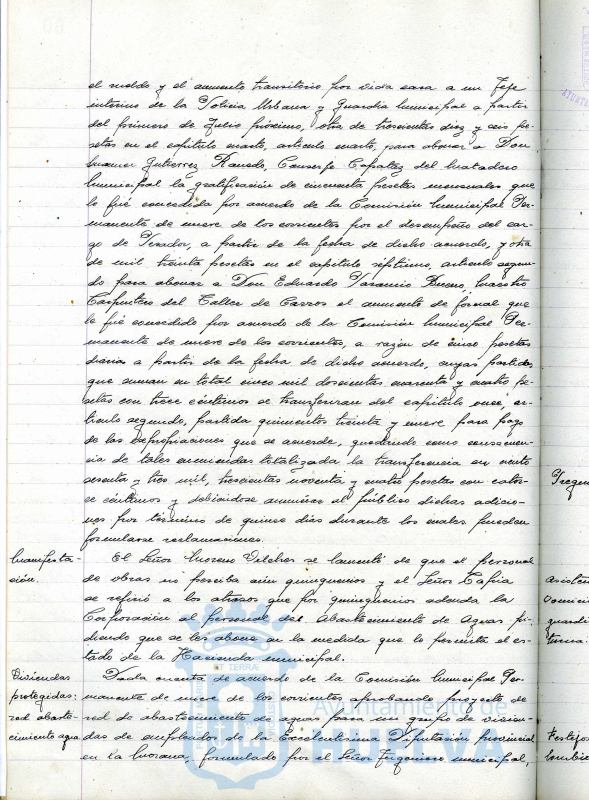 el sueldo y el aumento transitorio por vida cara a un Jefe
interino de la Policía Urbana y Guardia Municipal a partir
del primero de Julio próximo, otra de trescientas diez y seis pe-
setas en el capítulo cuarto, artículo cuarto, para abonar a Don
Manuel Gutierrez Ranedo, Conserje Capataz del Matadero
Municipal la gratificación de cincuenta pesetas mensuales que
le fué concedida por acuerdo de la Comisión Municipal Per-
manente de nueve de los corrientes por el desempeño del car-
go de Pesador, a partir de la fecha de dicho acuerdo, y otra
de mil treinta pesetas en el capítulo séptimo, artículo segun-
do para abonar a Don Eduardo Bueno, Maestro
Carpintero del Taller de Carros el aumento de jornal que
le fué concedido por acuerdo de la Comisión Municipal Per-
manente de nueve de los corrientes, a razón de cinco pesetas
diarias a partir de la fecha de dicho acuerdo, cuyas partidas
que suman en total cinco mil doscientas cuarenta y cuatro pe-
setas con trece céntimos se transferiran del capítulo once, ar-
tículo segundo, partida quinientos treinta y nueve para pago
de las expropiaciones que se acuerde, quedando como consecuen-
cia de tales enmiendas totalizada la transferencia en ciento
sesenta y tres mil, trescientas noventa y cuatro pesetas con cator-
ce céntimos y debiéndose anunciar al público dichas adicio-
nes por término de quince días durante los cuales pueden
formularse reclamaciones.
Manifesta-
ción.
El Señor Moreno Vilches se lamentó de que el personal
de obras no perciba aún quinquenios y el Señor Tapia
se refirió a los atrasos que por quinquenios adeuda la
Corporación al personal del Abastecimiento de Aguas pi-
diendo que se les abone en la medida que lo permita el es-
tado de la Hacienda municipal.
Viviendas
protegidas:
red abaste-
cimiento agua
Dada cuenta de acuerdo de la Comisión Municipal Per-
manente de nueve de los corrientes aprobando proyecto de
red de abastecimiento de aguas para un grupo de vivien-
das de empleados de la Excelentísima Diputación provincial
en la Morana, formulado por el Señor Ingeniero municipal,
Ayuntamiento de
HUELVA